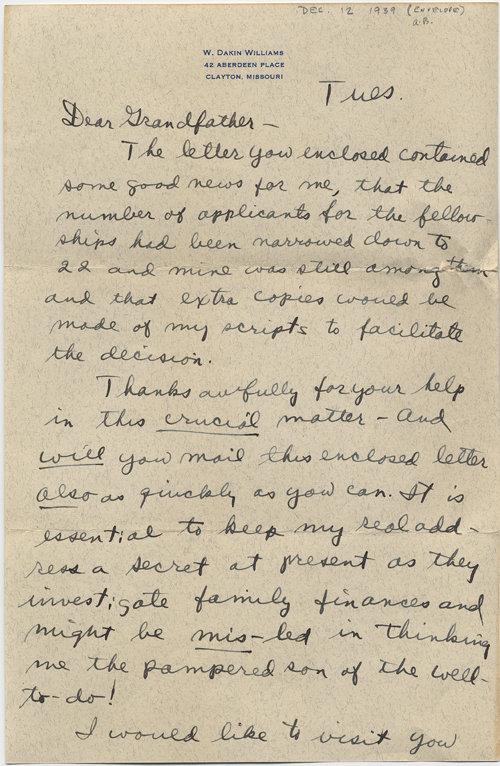 DEC. 12 1939 (ENVELOPE)
A.B.
W. DAKIN WILLIAMS
42 ABERDEEN PLACE
CLAYTON, MISSOURI
Tues.
Dear Grandfather —
The letter you enclosed contained
some good news for me, that the
number of applicants for the fellow-
ships had been narrowed down to
22 and mine was still among them
and that extra copies would be
made of my scripts to facilitate
the decision.
Thanks awfully for your help
in this crucial matter – And
will you mail this enclosed letter
also as quickly as you can. It is
essential to keep my real add-
ress a secret at present as they
investigate family finances and
might be mis-led in thinking
me the pampered son of the well-
to-do!
I would like to visit you